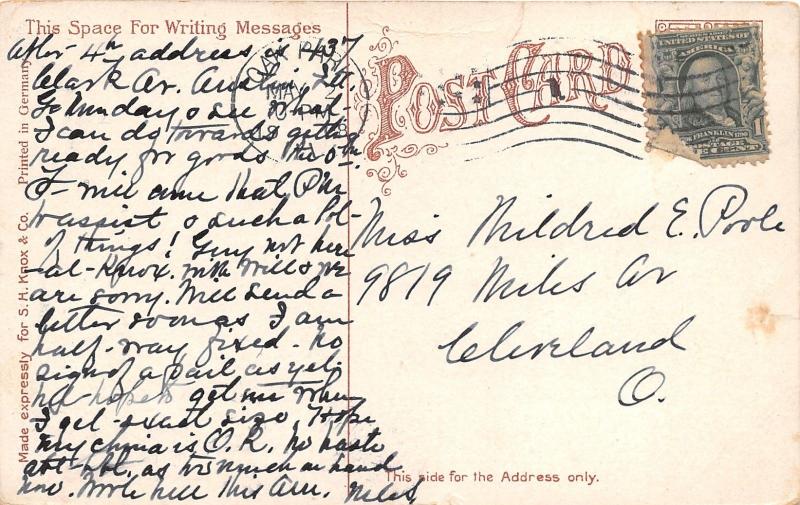 This Space For Writing Messages
After 4th address is 437
Clark Av. Austin, Ill.
Go Munday & see what
I can do towards getting
ready for goods the 5th
F- will come that P.M.
to assist & such a lot-
of things! Guy not here
-at-Knox. with Will & we
are sorry. Will send a
letter soon as I am
half-way fixed. No
sign of a pail as yet.
get me when
I get exact size. Hope
my china is O.K. no haste
abt as much on hand
now.
here this
Printed in Germany
Made expressly for S. H. Knox & Co.
OAK PARK
MAY
POST CARD
UNITED STATES OF AMERICA
FRANKLIN
POSTAGE
1
Miss Mildred E. Poole
9819 Miles Av
Cleveland
O.
This side for the Address only.